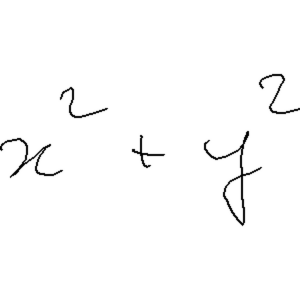 x² + y²